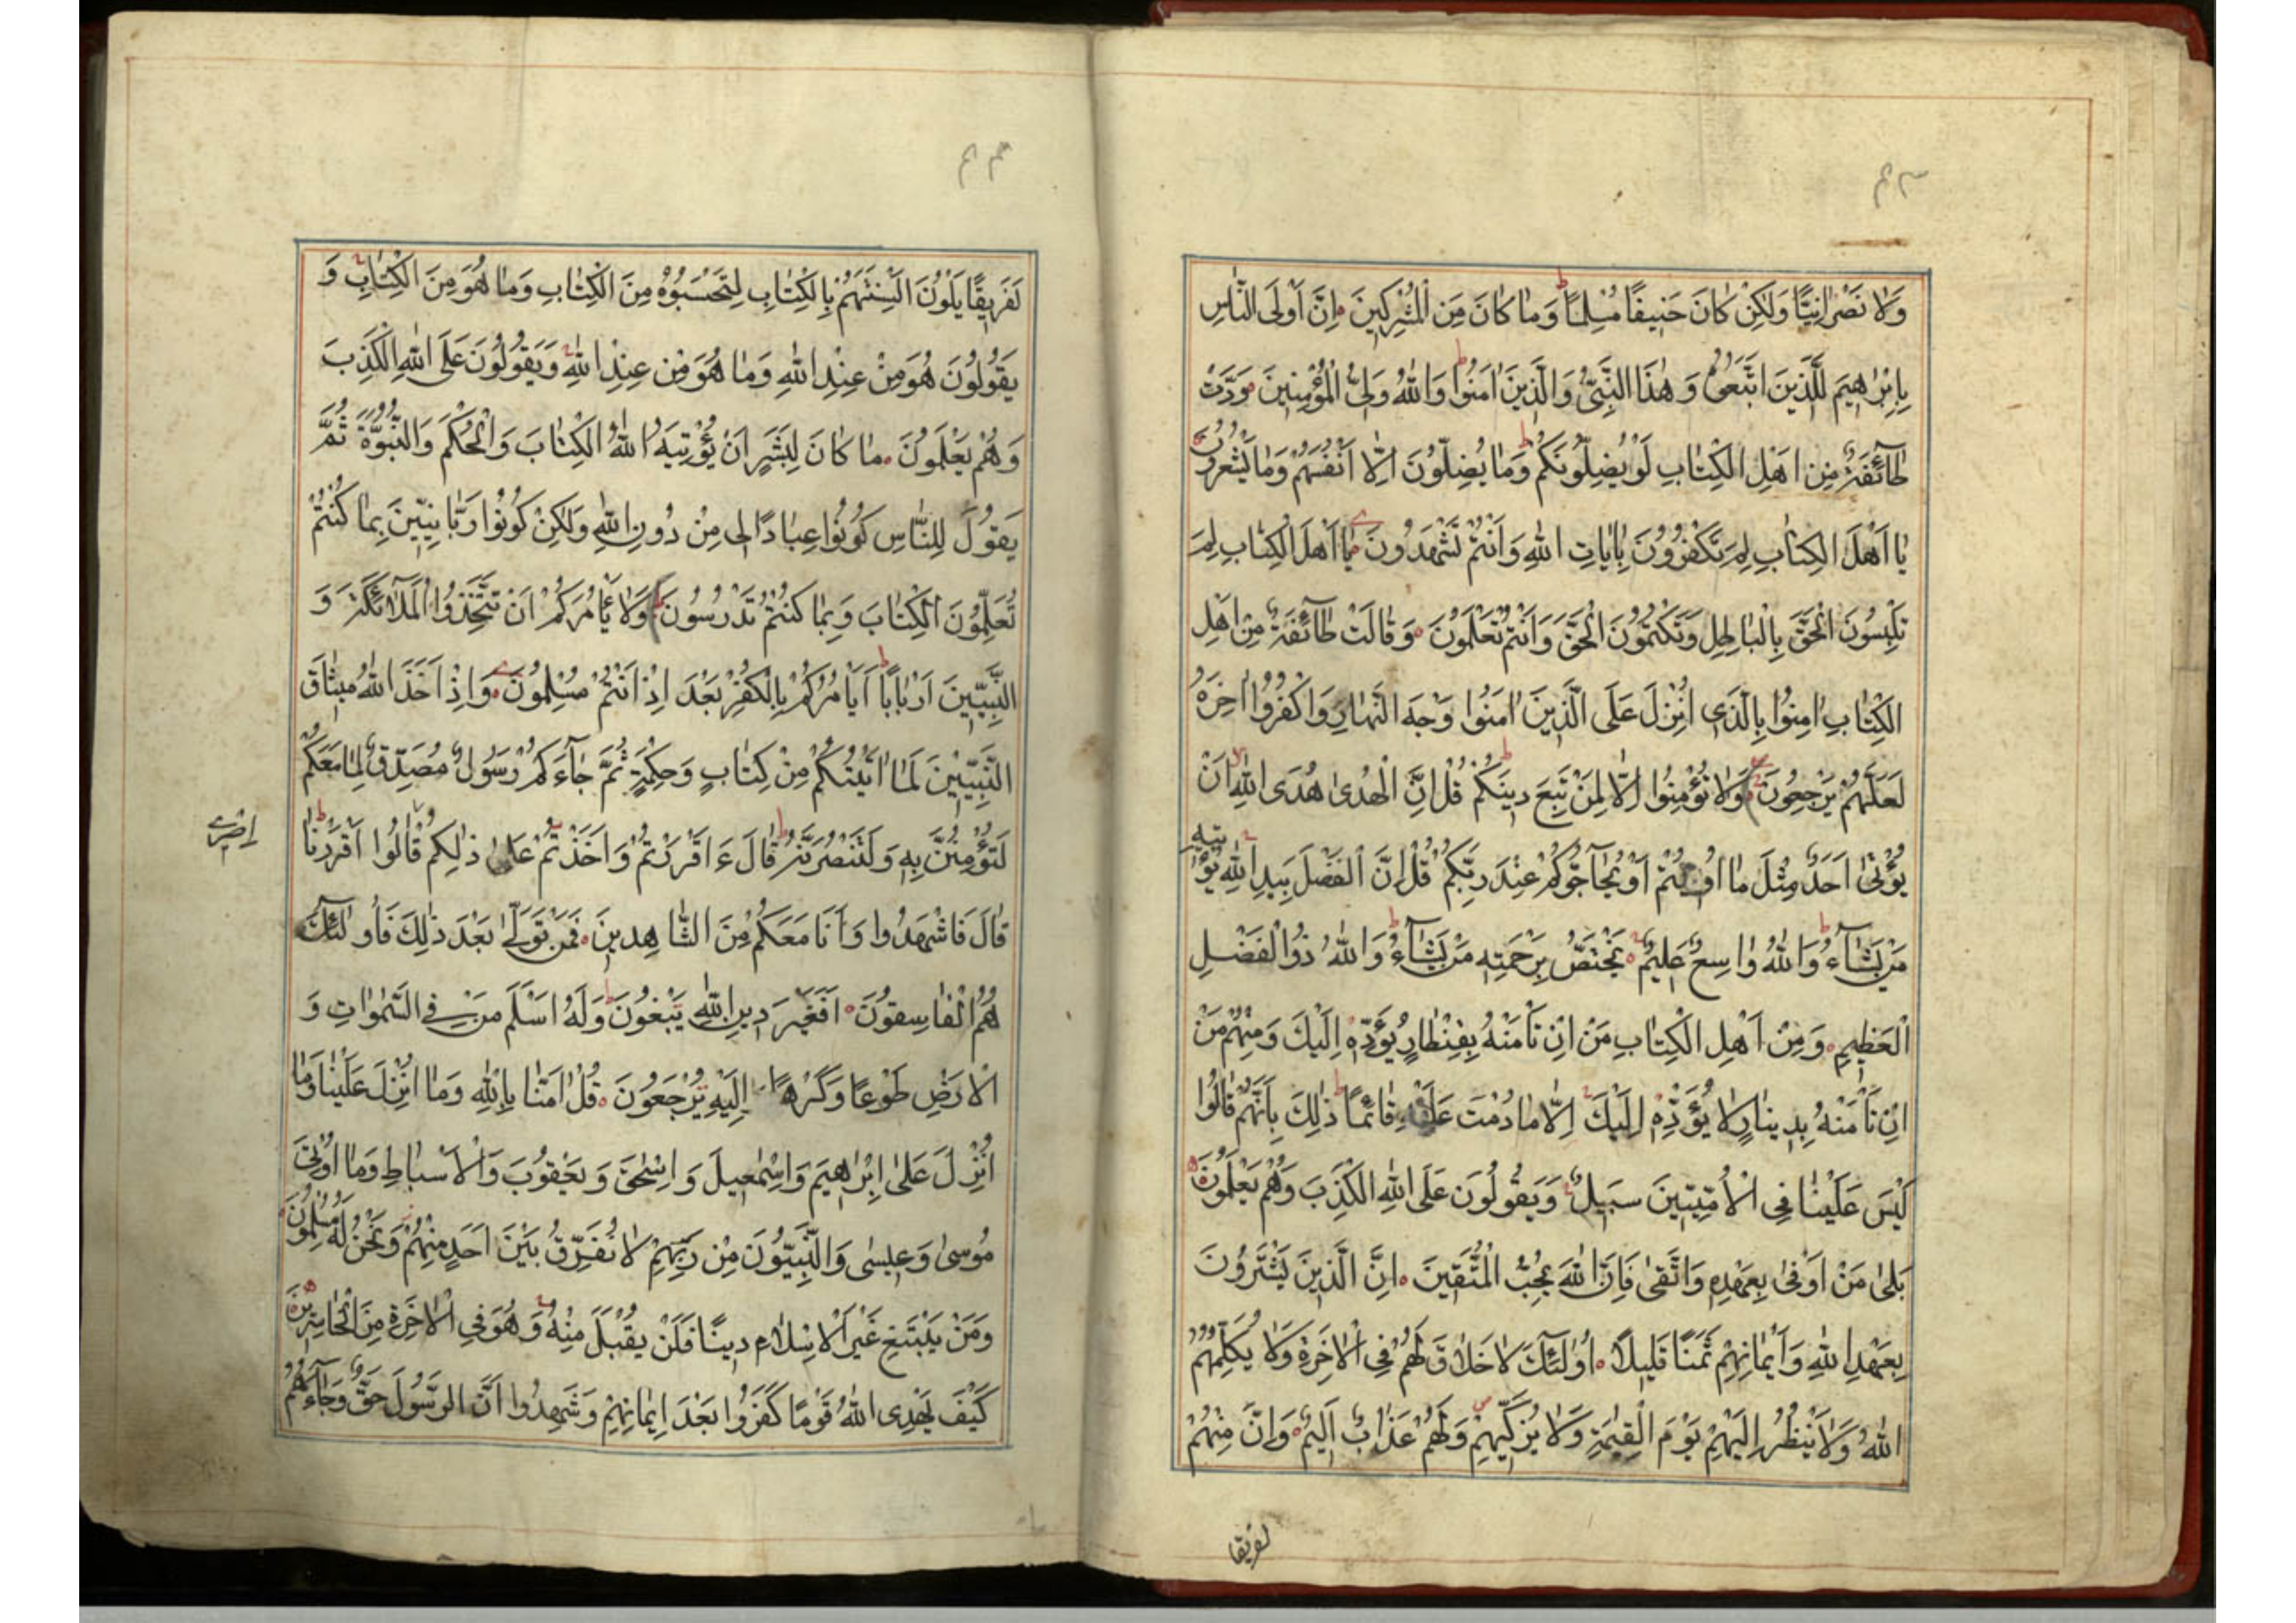 وَلَا نَصْرَانِيًّا وَلَكِنْ كَانَ حَنِيفًا مُسْلِمًا ط وَمَا كَانَ مِنَ الْمُشْرِكِينَ اِنَّ اَوْلَى النَّاسِ
بِاِبْرٰاهِيمَ لَلَّذِينَ اتَّبَعُوهُ وَ هٰذَا النَّبِيُّ وَالَّذِينَ اٰمَنُوا ط وَاللّٰهُ وَلِيُّ الْمُؤْمِنِينَ وَدَّتْ
طٰآئِفَةٌ مِنْ اَهْلِ الْكِتٰابِ لَوْ يُضِلُّونَكُمْ ط وَمٰا يُضِلُّونَ اِلّٰا اَنْفُسَهُمْ وَمٰا يَشْعُرُونَ
يٰا اَهْلَ الْكِتٰابِ لِمَ تَكْفُرُونَ بِاٰيٰاتِ اللّٰهِ وَاَنْتُمْ تَشْهَدُونَ يٰا اَهْلَ الْكِتٰابِ لِمَ
تَلْبِسُونَ الْحَقَّ بِالْبٰاطِلِ وَتَكْتُمُونَ الْحَقَّ وَاَنْتُمْ تَعْلَمُونَ وَقٰالَتْ طٰآئِفَةٌ مِنْ اَهْلِ
الْكِتٰابِ اٰمِنُوا بِالَّذِى اُنْزِلَ عَلَى الَّذِينَ اٰمَنُوا وَجْهَ النَّهٰارِ وَاكْفُرُوا اٰخِرَهُ
لَعَلَّهُمْ يَرْجِعُونَ وَلٰا تُؤْمِنُوا اِلّٰا لِمَنْ تَبِعَ دِينَكُمْ ط قُلْ اِنَّ الْهُدٰى هُدَى اللّٰهِ لا اَنْ
يُؤْتٰى اَحَدٌ مِثْلَ مٰا اُوتِيتُمْ اَوْ يُحٰآجُّوكُمْ عِنْدَ رَبِّكُمْ قُلْ اِنَّ الْفَضْلَ بِيَدِ اللّٰهِ يُؤْتِيهِ
مَنْ يَشٰآءُ ط وَاللّٰهُ وٰاسِعٌ عَلِيمٌ يَخْتَصُّ بِرَحْمَتِهِ مَنْ يَشٰآءُ ط وَاللّٰهُ ذُوالْفَضْلِ
الْعَظِيمِ وَمِنْ اَهْلِ الْكِتٰابِ مَنْ اِنْ تَاْمَنْهُ بِقِنْطٰارٍ يُؤَدِّهِ اِلَيْكَ وَمِنْهُمْ مَنْ
اِنْ تَاْمَنْهُ بِدِينٰارٍ لٰا يُؤَدِّهِ اِلَيْكَ اِلّٰا مٰا دُمْتَ عَلَيْهِ قٰائِمًا ط ذٰلِكَ بِاَنَّهُمْ قٰالُوا
لَيْسَ عَلَيْنٰا فِى الْاُمِّيِّينَ سَبِيلٌ وَيَقُولُونَ عَلَى اللّٰهِ الْكَذِبَ وَهُمْ يَعْلَمُونَ
بَلٰى مَنْ اَوْفٰى بِعَهْدِهِ وَاتَّقٰى فَاِنَّ اللّٰهَ يُحِبُّ الْمُتَّقِينَ اِنَّ الَّذِينَ يَشْتَرُونَ
بِعَهْدِ اللّٰهِ وَاَيْمٰانِهِمْ ثَمَنًا قَلِيلًا اُولٰئِكَ لٰا خَلٰاقَ لَهُمْ فِى الْاٰخِرَةِ وَلٰا يُكَلِّمُهُمُ
اللّٰهُ وَلٰا يَنْظُرُ اِلَيْهِمْ يَوْمَ الْقِيٰمَةِ وَلٰا يُزَكِّيهِمْ وَلَهُمْ عَذٰابٌ اَلِيمٌ وَاِنَّ مِنْهُمْ
لفريقا
لَفَرِيقًا يَلْوُنَ اَلْسِنَتَهُمْ بِالْكِتٰابِ لِتَحْسَبُوهُ مِنَ الْكِتٰابِ وَمٰا هُوَ مِنَ الْكِتٰابِ وَ
يَقُولُونَ هُوَ مِنْ عِنْدِ اللّٰهِ وَمٰا هُوَ مِنْ عِنْدِ اللّٰهِ وَيَقُولُونَ عَلَى اللّٰهِ الْكَذِبَ
وَهُمْ يَعْلَمُونَ مٰا كٰانَ لِبَشَرٍ اَنْ يُؤْتِيَهُ اللّٰهُ الْكِتٰابَ وَالْحُكْمَ وَالنُّبُوَّةَ ثُمَّ
يَقُولَ لِلنّٰاسِ كُونُوا عِبٰادًا لِى مِنْ دُونِ اللّٰهِ وَلٰكِنْ كُونُوا رَبّٰانِيِّينَ بِمٰا كُنْتُمْ
تُعَلِّمُونَ الْكِتٰابَ وَبِمٰا كُنْتُمْ تَدْرُسُونَ وَلٰا يَاْمُرَكُمْ اَنْ تَتَّخِذُوا الْمَلٰآئِكَةَ وَ
النَّبِيِّينَ اَرْبٰابًا ط اَيَاْمُرُكُمْ بِالْكُفْرِ بَعْدَ اِذْ اَنْتُمْ مُسْلِمُونَ وَاِذْ اَخَذَ اللّٰهُ مِيثٰاقَ
النَّبِيِّينَ لَمٰا اٰتَيْتُكُمْ مِنْ كِتٰابٍ وَحِكْمَةٍ ثُمَّ جٰآءَكُمْ رَسُولٌ مُصَدِّقٌ لِمٰا مَعَكُمْ
لَتُؤْمِنُنَّ بِهِ وَلَتَنْصُرُنَّهُ ط قٰالَ ءَاَقْرَرْتُمْ وَاَخَذْتُمْ عَلٰى ذٰلِكُمْ قٰالُوا اَقْرَرْنٰا ط
اِصْرِى
قٰالَ فَاشْهَدُوا وَاَنَا مَعَكُمْ مِنَ الشّٰاهِدِينَ فَمَنْ تَوَلّٰى بَعْدَ ذٰلِكَ فَاُولٰئِكَ
هُمُ الْفٰاسِقُونَ اَفَغَيْرَ دِينِ اللّٰهِ يَبْغُونَ وَلَهُ اَسْلَمَ مَنْ فِى السَّمٰوٰاتِ وَ
الْاَرْضِ طَوْعًا وَكَرْهًا اِلَيْهِ يُرْجَعُونَ قُلْ اٰمَنّٰا بِاللّٰهِ وَمٰا اُنْزِلَ عَلَيْنٰا وَمٰا
اُنْزِلَ عَلٰى اِبْرٰاهِيمَ وَاِسْمٰعِيلَ وَاِسْحٰقَ وَيَعْقُوبَ وَالْاَسْبٰاطِ وَمٰا اُوتِىَ
مُوسٰى وَعِيسٰى وَالنَّبِيُّونَ مِنْ رَبِّهِمْ لٰا نُفَرِّقُ بَيْنَ اَحَدٍ مِنْهُمْ وَنَحْنُ لَهُ مُسْلِمُونَ
وَمَنْ يَبْتَغِ غَيْرَ الْاِسْلٰامِ دِينًا فَلَنْ يُقْبَلَ مِنْهُ وَهُوَ فِى الْاٰخِرَةِ مِنَ الْخٰاسِرِينَ
كَيْفَ يَهْدِى اللّٰهُ قَوْمًا كَفَرُوا بَعْدَ اِيمٰانِهِمْ وَشَهِدُوا اَنَّ الرَّسُولَ حَقٌّ وَجٰآءَهُمُ